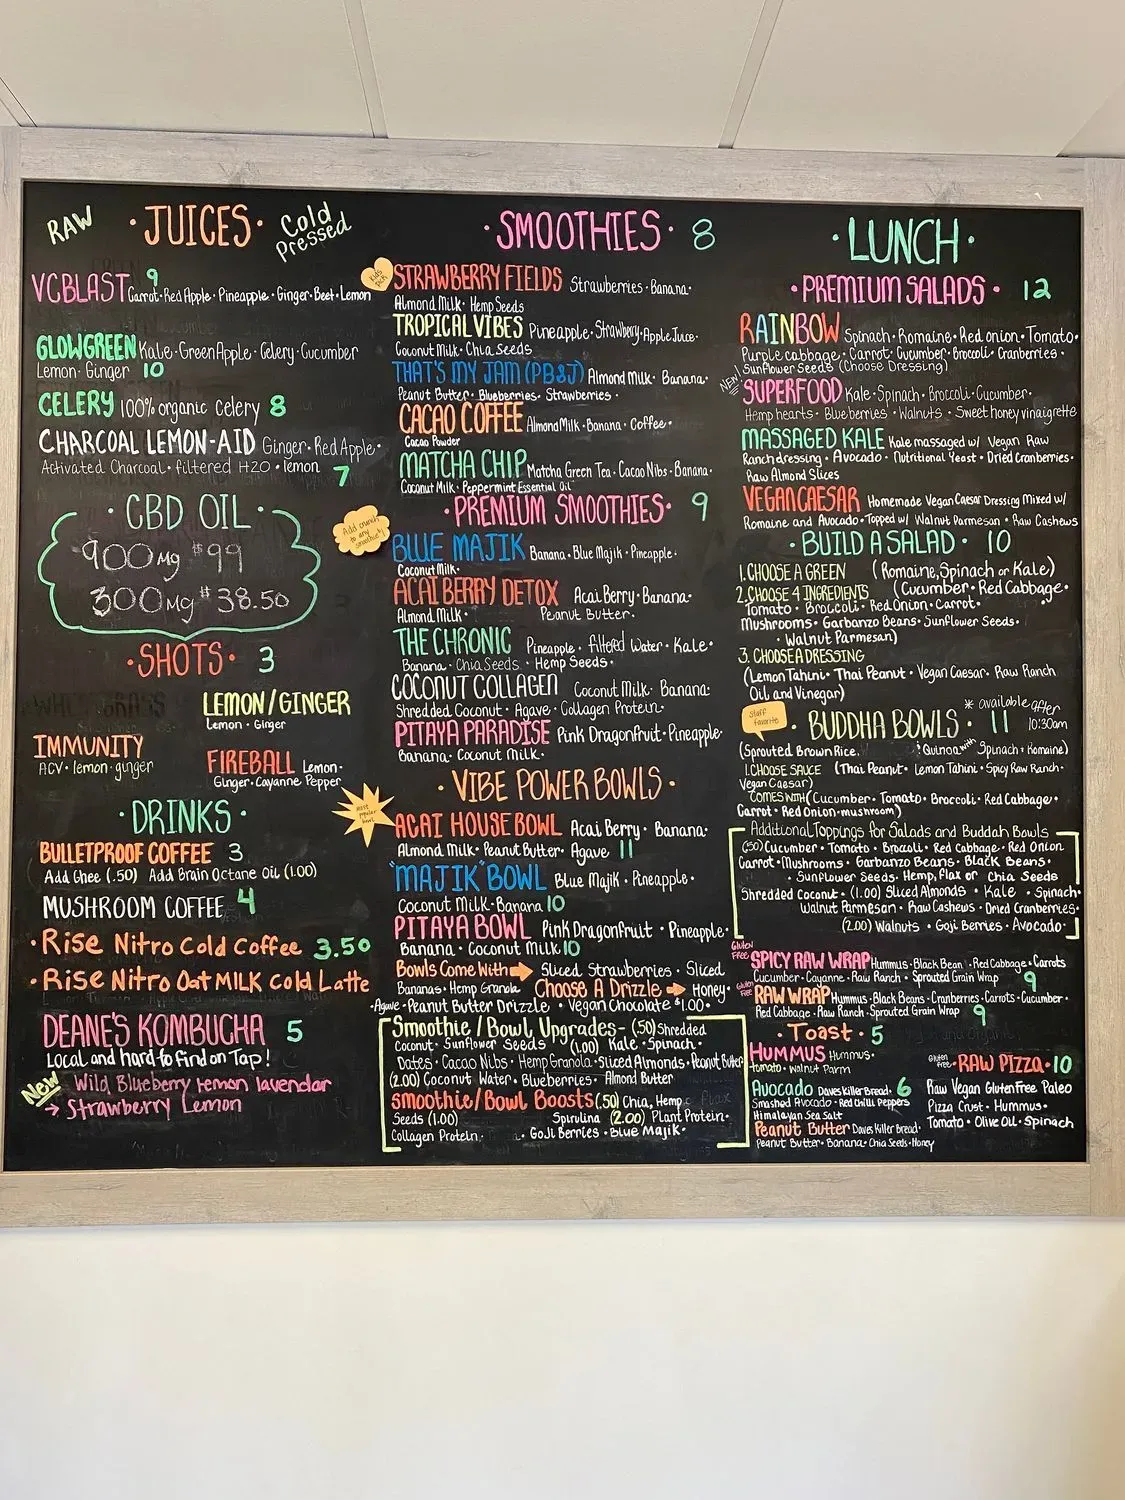 RAW
• JUICES •
Cold Pressed
VCBLAST 9
Carrot • Red Apple • Pineapple • Ginger • Beet • Lemon
GLOWGREEN Kale • Green Apple • Celery • Cucumber
Lemon • Ginger 10
CELERY 100% organic Celery 8
CHARCOAL LEMON-AID Ginger • Red Apple •
Activated Charcoal • filtered H2O • lemon 7
• CBD OIL •
900mg $99
300mg $38.50
• SHOTS • 3
LEMON/GINGER
Lemon • Ginger
IMMUNITY
ACV • lemon • ginger
FIREBALL Lemon •
Ginger • Cayanne Pepper
• DRINKS •
BULLETPROOF COFFEE 3
Add Ghee (.50) Add Brain Octane Oil (1.00)
MUSHROOM COFFEE 4
• Rise Nitro Cold Coffee 3.50
• Rise Nitro Oat MILK Cold Latte
DEANE'S KOMBUCHA 5
Local and hard to find on Tap!
New Wild Blueberry Lemon lavendar
→ Strawberry Lemon
• SMOOTHIES • 8
Kids Pick
STRAWBERRY FIELDS Strawberries • Banana •
Almond Milk • Hemp Seeds
TROPICAL VIBES Pineapple • Strawberry • Apple Juice •
Coconut Milk • Chia Seeds
THAT'S MY JAM (PB&J) Almond Milk • Banana •
Peanut Butter • Blueberries • Strawberries •
CACAO COFFEE Almond Milk • Banana • Coffee •
Cacao Powder
MATCHA CHIP Matcha Green Tea • Cacao Nibs • Banana •
Coconut Milk • Peppermint Essential Oil
• PREMIUM SMOOTHIES • 9
Add crunch to any smoothie!
BLUE MAJIK Banana • Blue Majik • Pineapple •
Coconut Milk •
ACAI BERRY DETOX Acai Berry • Banana •
Almond Milk • Peanut Butter •
THE CHRONIC Pineapple • filtered Water • Kale •
Banana • Chia Seeds • Hemp Seeds •
COCONUT COLLAGEN Coconut Milk • Banana •
Shredded Coconut • Agave • Collagen Protein •
PITAYA PARADISE Pink Dragonfruit • Pineapple •
Banana • Coconut Milk •
• VIBE POWER BOWLS •
Most popular bowl
ACAI HOUSE BOWL Acai Berry • Banana •
Almond Milk • Peanut Butter • Agave 11
"MAJIK" BOWL Blue Majik • Pineapple •
Coconut Milk • Banana 10
PITAYA BOWL Pink Dragonfruit • Pineapple •
Banana • Coconut Milk 10
Bowls Come With → Sliced Strawberries • Sliced
Bananas • Hemp Granola Choose A Drizzle → Honey •
• Agave • Peanut Butter Drizzle • Vegan Chocolate $1.00 •
Smoothie / Bowl Upgrades - (.50) Shredded
Coconut • Sunflower Seeds (1.00) Kale • Spinach •
Dates • Cacao Nibs • Hemp Granola • Sliced Almonds • Peanut Butter
(2.00) Coconut Water • Blueberries • Almond Butter
Smoothie/Bowl Boosts (.50) Chia, Hemp, Flax
Seeds (1.00) Spirulina (2.00) Plant Protein •
Collagen Protein • Goji Berries • Blue Majik •
• LUNCH •
• PREMIUM SALADS • 12
RAINBOW Spinach • Romaine • Red onion • Tomato •
Purple cabbage • Carrot • Cucumber • Brocoli • Cranberries •
Sunflower Seeds (Choose Dressing)
NEW! SUPERFOOD Kale • Spinach • Broccoli • Cucumber •
Hemp hearts • Blueberries • Walnuts • Sweet honey vinaigrette
MASSAGED KALE Kale massaged w/ Vegan Raw
Ranch dressing • Avocado • Nutritional Yeast • Dried Cranberries •
Raw Almond Slices
VEGAN CAESAR Homemade Vegan Caesar Dressing Mixed w/
Romaine and Avocado • Topped w/ Walnut Parmesan • Raw Cashews
• BUILD A SALAD • 10
1. CHOOSE A GREEN (Romaine, Spinach or Kale)
2. CHOOSE 4 INGREDIENTS (Cucumber • Red Cabbage •
Tomato • Broccoli • Red Onion • Carrot •
Mushrooms • Garbanzo Beans • Sunflower Seeds •
• Walnut Parmesan)
3. CHOOSE A DRESSING
(Lemon Tahini • Thai Peanut • Vegan Caesar • Raw Ranch
Oil and Vinegar)
Staff favorite
• BUDDHA BOWLS • 11
* available after 10:30am
(Sprouted Brown Rice, Quinoa with Spinach • Romaine)
1. CHOOSE SAUCE (Thai Peanut • Lemon Tahini • Spicy Raw Ranch •
Vegan Caesar)
COMES WITH (Cucumber • Tomato • Broccoli • Red Cabbage •
Carrot • Red Onion • mushroom)
Additional Toppings for Salads and Buddah Bowls
(.50) Cucumber • Tomato • Brocoli • Red Cabbage • Red Onion
Carrot • Mushrooms • Garbanzo Beans • Black Beans •
• Sunflower Seeds • Hemp, Flax or Chia Seeds
Shredded Coconut • (1.00) Sliced Almonds • Kale • Spinach •
Walnut Parmesan • Raw Cashews • Dried Cranberries •
(2.00) Walnuts • Goji Berries • Avocado •
Gluten FREE SPICY RAW WRAP Hummus • Black Bean • Red Cabbage • Carrots
Cucumber • Cayanne • Raw Ranch • Sprouted Grain Wrap 9
Gluten FREE RAW WRAP Hummus • Black Beans • Cranberries • Carrots • Cucumber •
Red Cabbage • Raw Ranch • Sprouted Grain Wrap 9
• Toast • 5
HUMMUS Hummus •
tomato • Walnut Parm
Avocado Daves Killer Bread • 6
Smashed Avocado • Red Chilli Peppers
Himalayan Sea Salt
Peanut Butter Daves Killer Bread •
Peanut Butter • Banana • Chia Seeds • Honey
Gluten free • RAW PIZZA • 10
Raw Vegan Gluten Free Paleo
Pizza Crust • Hummus •
Tomato • Olive Oil • Spinach